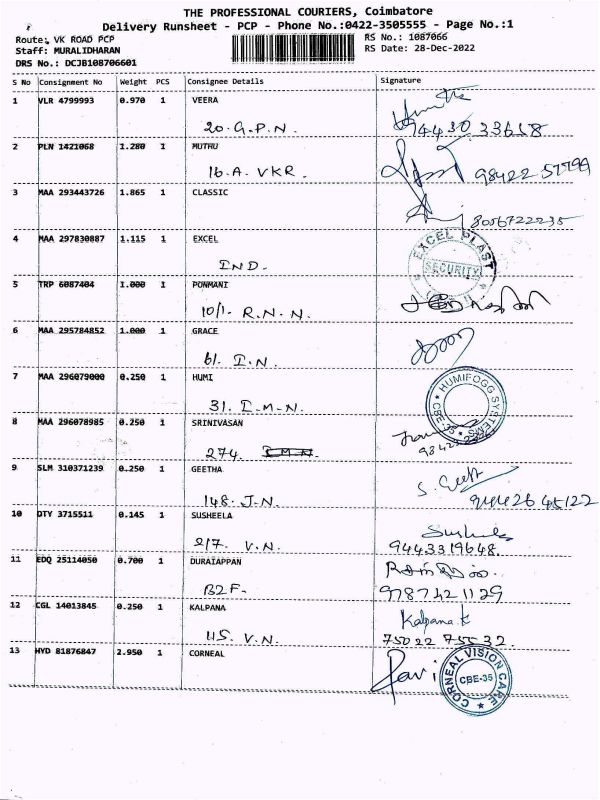 THE PROFESSIONAL COURIERS, Coimbatore
Delivery Runsheet - PCP - Phone No.:0422-3505555 - Page No.:1
Route: VK ROAD PCP RS No.: 1087066
Staff: MURALIDHARAN RS Date: 28-Dec-2022
DRS No.: DCJB108706601
S No Consignment No Weight PCS Consignee Details Signature
1 VLR 4799993 0.970 1 VEERA
20. G.P.N. 94430 33658
2 PLN 1421068 1.280 1 MUTHU
16.A. VKR. 98422 57799
3 MAA 293443726 1.865 1 CLASSIC
8056722235
4 MAA 297830887 1.115 1 EXCEL
IND. EXCEL PLAST SECURITY
5 TRP 6087404 1.000 1 PONMANI
10/1. R.N.N.
6 MAA 295784852 1.000 1 GRACE
61. I.N.
7 MAA 296079000 0.250 1 HUMI
31. I.M.N. HUMIFOGG SYSTEMS CBE-35
8 MAA 296078985 0.250 1 SRINIVASAN
274.
9 SLM 310371239 0.250 1 GEETHA
148. J.N. S. Geetha 94426 45122
10 DTY 3715511 0.145 1 SUSHEELA
217. V.N. 9443319648.
11 EDQ 25114050 0.700 1 DURAIAPPAN
B2F. 9787421129
12 CGL 14013845 0.250 1 KALPANA Kalpana K
45. V.N. 75022 75532
13 HYD 81876847 2.950 1 CORNEAL Ravi CORNEAL VISION CARE CBE-35